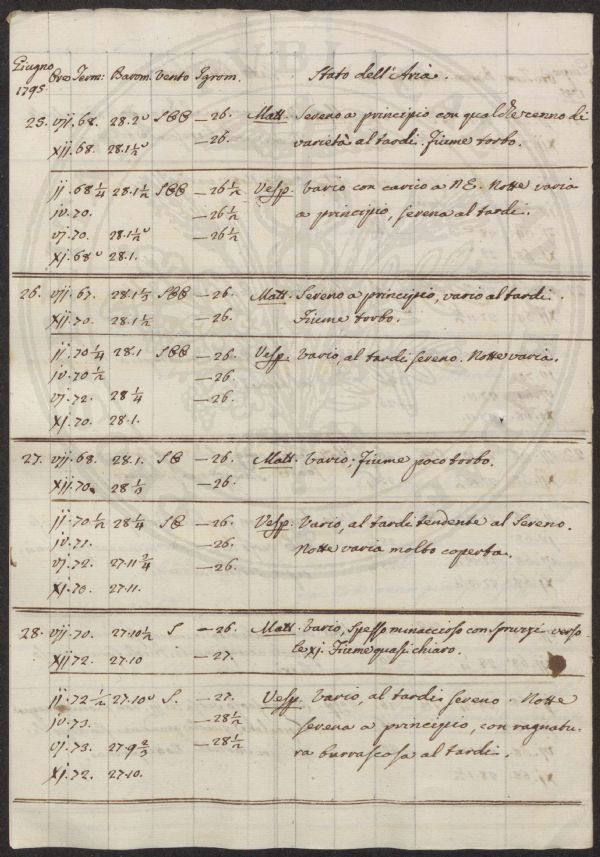 Giugno
1795
Ore Term: Barom. Vento Igrom. Stato dell'Aria.
25. vij. 68. 28.2° SEE — 26. Matt. Sereno a principio con qualche cenno di
xij. 68. 28.1½° — 26. varietà al tardi. Fiume torbo.
ij. 68¼ 28.1½ SEE — 26½ Vesp. Vario con carico a NE. Notte varia
iv. 70. — 26½ a principio, serena al tardi.
vj. 70. 28.1½° — 26½
xj. 68° 28.1.
26. vij. 67. 28.1⅓ SEE — 26. Matt. Sereno a principio, vario al tardi.
xij. 70. 28.1½ — 26. Fiume torbo.
ij. 70¼ 28.1 SEE — 26. Vesp. Vario, al tardi sereno. Notte varia.
iv. 70½ — 26.
vj. 72. 28¼ — 26.
xj. 70. 28.1.
27. vij. 68. 28.1. SE — 26. Matt. Vario; Fiume poco torbo.
xij. 70. 28½ — 26.
ij. 70½ 28¼ SE — 26. Vesp. Vario, al tardi tendente al Sereno.
iv. 71. — 26. Notte varia molto coperta.
vj. 72. 27.11¾ — 26.
xj. 70. 27.11.
28. vij. 70. 27.10½ S — 26. Matt. Vario, spesso minaccioso con spruzzi verso
xij 72. 27.10 — 27. le xj. Fiume quasi chiaro.
ij. 72½ 27.10° S. — 27. Vesp. Vario, al tardi sereno. Notte
iv. 73. — 28½ serena a principio, con ragnatu-
vj. 73. 27.9⅔ — 28½ ra burrascosa al tardi.
xj. 72. 27.10.